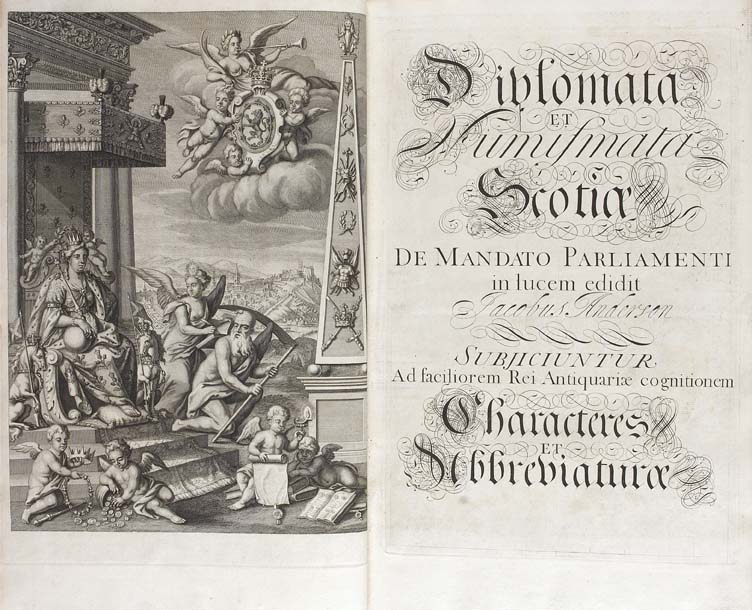 Diplomata
ET
Numiſmata
Scotiæ
DE MANDATO PARLIAMENTI
in lucem edidit
Jacobus Anderson
SUBJICIUNTUR
Ad faciliorem Rei Antiquariæ cognitionem
Characteres
ET
Abbreviaturæ